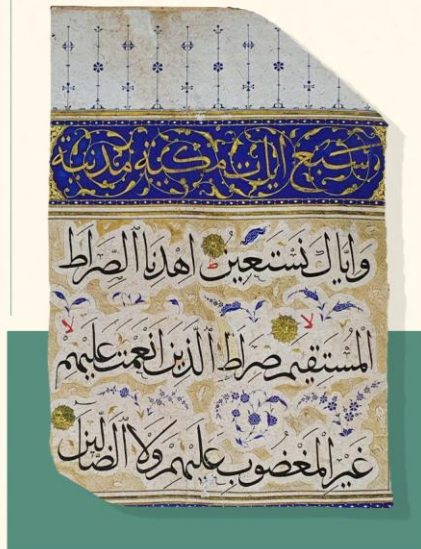 سبع ايات مكية مدنية
واياك نستعين اهدنا الصراط
المستقيم صراط الذين انعمت عليهم
غير المغضوب عليهم ولا الضالين